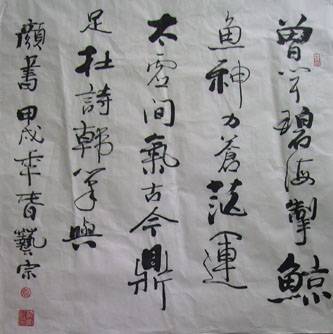 曾于碧海掣鯨
魚神力蒼茫運
太虛間氣古今鼎
足杜詩韓筆與
顏書甲戌年春藝宗